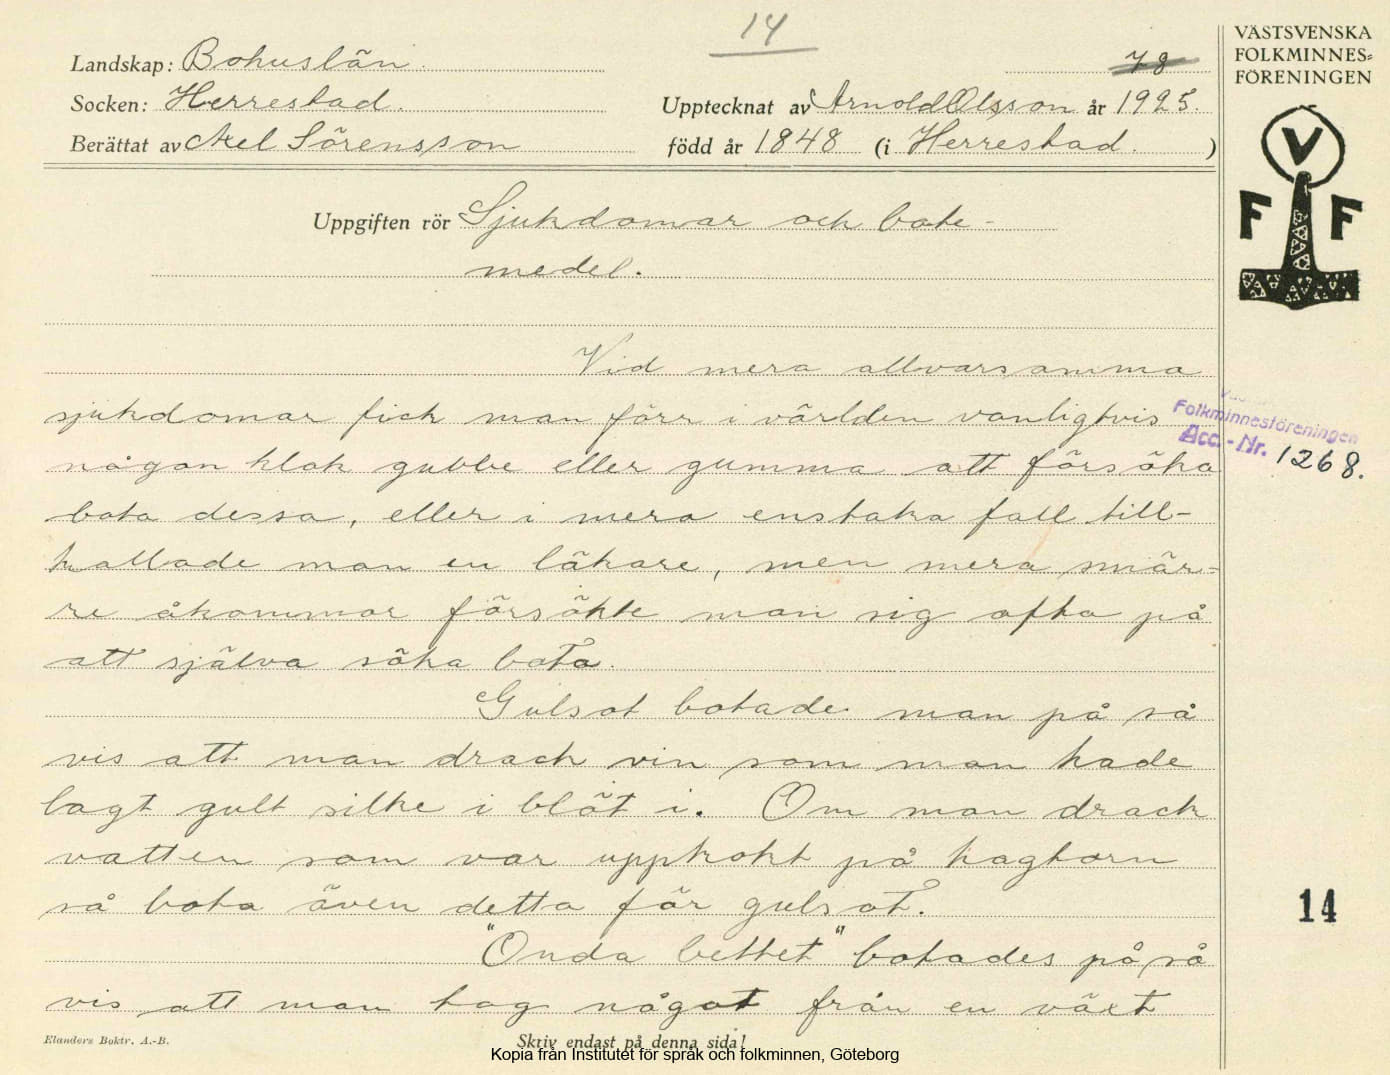 14
Landskap: Bohuslän.
78
VÄSTSVENSKA
FOLKMINNES-
FÖRENINGEN
Socken: Herrestad.
Upptecknat av Arnold Olsson år 1925.
Berättat av Axel Sörensson
född år 1848 (i Herrestad. )
V
F F
Uppgiften rör Sjukdomar och bote-
medel.
Vid mera allvarsamma
sjukdomar fick man förr i världen vanligtvis
någon klok gubbe eller gumma att försöka
bota dessa, eller i mera enstaka fall till-
kallade man en läkare, men mera smär-
re åkommor försökte man sig ofta på
att själva söka bota.
Folkminnesföreningen
Acc.-Nr. 1268.
Gulsot botade man på så
vis att man drack vin som man hade
lagt gult silke i blöt i. Om man drack
vatten som var uppkokt på hagtorn
så bota även detta för gulsot.
14
"Onda bettet" botades på så
vis att man tog något från en växt
Elanders Boktr. A.-B.
Skriv endast på denna sida!
Kopia från Institutet för språk och folkminnen, Göteborg